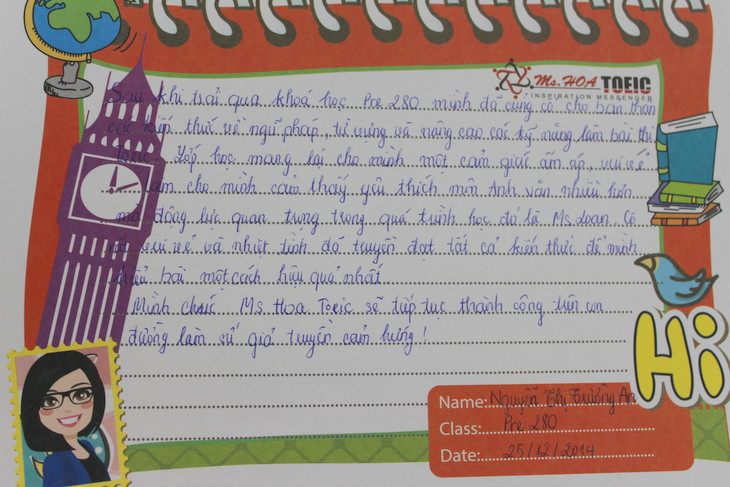 Ms. HOA TOEIC
INSPIRATION MESSENGER
Sau khi trải qua khoá học Pre 280 mình đã củng cố cho bản thân
các kiến thức về ngữ pháp, từ vựng và nâng cao các kỹ năng làm bài thi
Toeic. Lớp học mang lại cho mình một cảm giác ấm áp, vui vẻ
làm cho mình cảm thấy yêu thích môn Anh văn nhiều hơn
mà động lực quan trọng trong quá trình học đó là Ms.Loan. Cô
vui vẻ và nhiệt tình đã truyền đạt tất cả kiến thức để mình
hiểu bài một cách hiệu quả nhất
Mình chúc Ms Hoa Toeic sẽ tiếp tục thành công trên con
đường làm sứ giả truyền cảm hứng!
Hi
Name: Nguyễn Thị Trường An
Class: Pre 280
Date: 25/12/2014